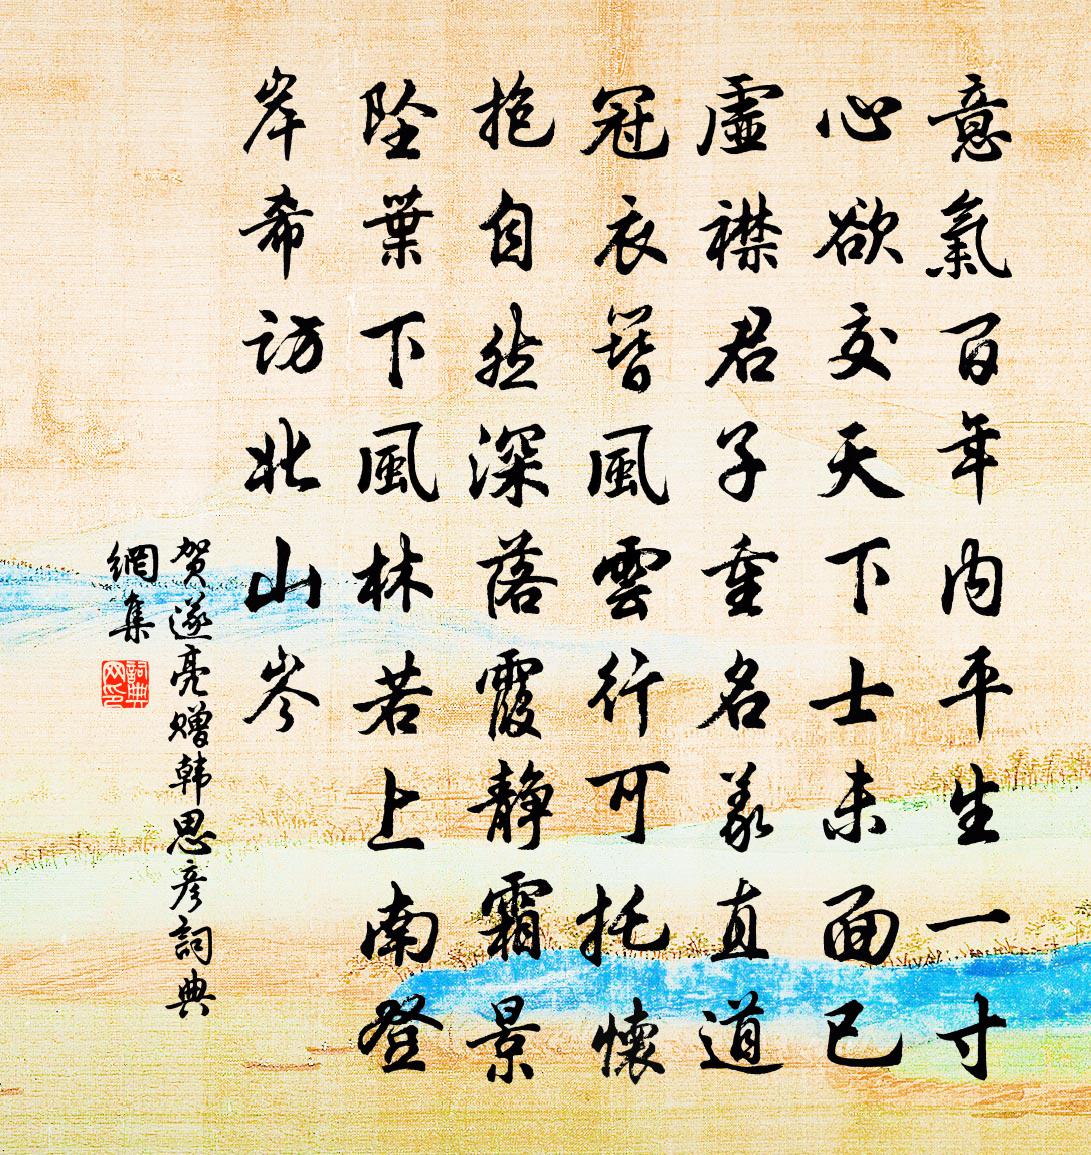 意氣百年内平生一寸
心欲交天下士未面已
虛襟君子重名義直道
冠衣簪風雲行可托懷
抱自然深落霞靜霜景
墜葉下風林若上南登
岸希訪北山岑
贺遂亮赠韩思彦詞典
網集
詞典网印